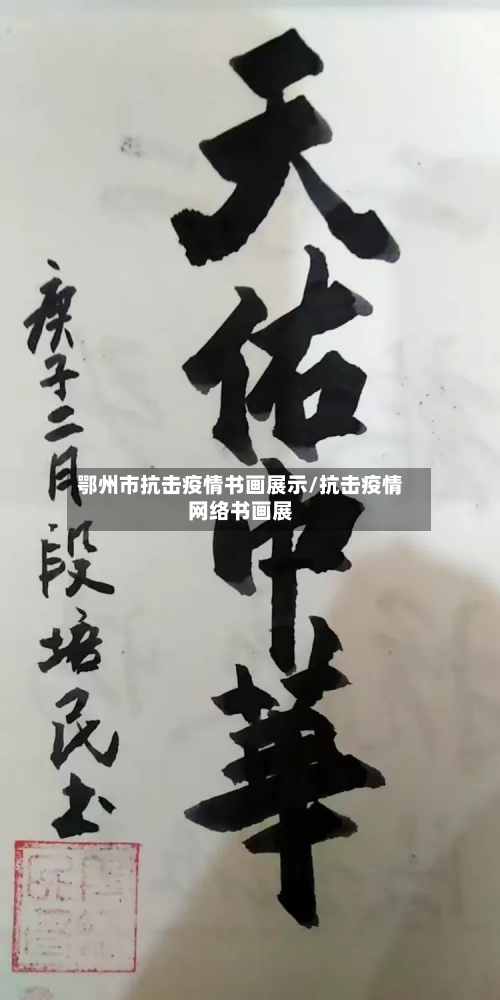 天佑中華
庚子二月段培民书
鄂州市抗击疫情书画展示/抗击疫情
网络书画展